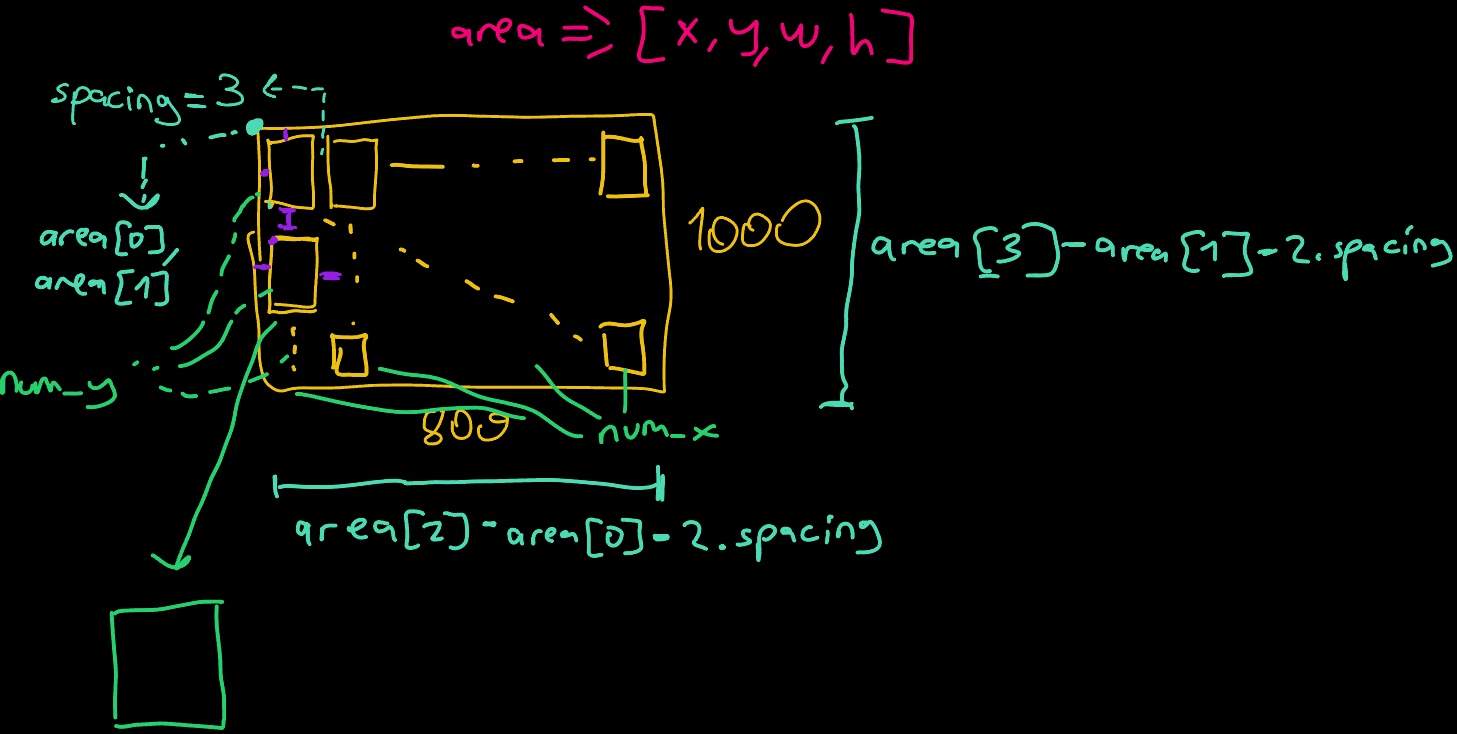 area => [x, y, w, h]
spacing = 3
area[0],
area[1]
1000
area[3] - area[1] - 2.spacing
num_y
800
num_x
area[2] - area[0] - 2.spacing